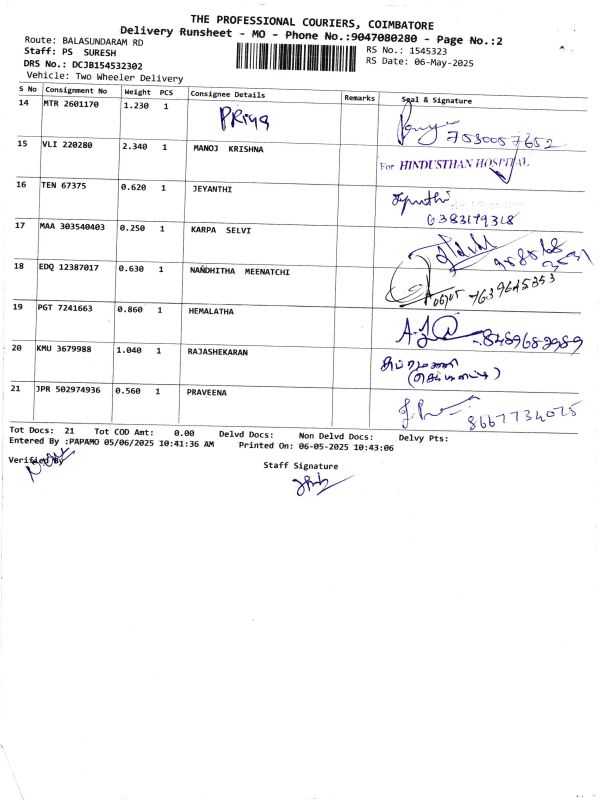 THE PROFESSIONAL COURIERS, COIMBATORE
Delivery Runsheet - MO - Phone No.:9047080280 - Page No.:2
Route: BALASUNDARAM RD
RS No.: 1545323
Staff: PS SURESH
RS Date: 06-May-2025
DRS No.: DCJB154532302
Vehicle: Two Wheeler Delivery
S No Consignment No Weight PCS Consignee Details Remarks Seal & Signature
14 MTR 2601170 1.230 1 PRiya
7530057652
15 VLI 220280 2.340 1 MANOJ KRISHNA
For HINDUSTHAN HOSPITAL
16 TEN 67375 0.620 1 JEYANTHI
17 MAA 303540403 0.250 1 KARPA SELVI
18 EDQ 12387017 0.630 1 NANDHITHA MEENATCHI
7639645353
19 PGT 7241663 0.860 1 HEMALATHA
8489682989
20 KMU 3679988 1.040 1 RAJASHEKARAN
21 JPR 502974936 0.560 1 PRAVEENA
8667734075
Tot Docs: 21 Tot COD Amt: 0.00 Delvd Docs: Non Delvd Docs: Delvy Pts:
Entered By :PAPAMO 05/06/2025 10:41:36 AM Printed On: 06-05-2025 10:43:06
Verified By
Staff Signature